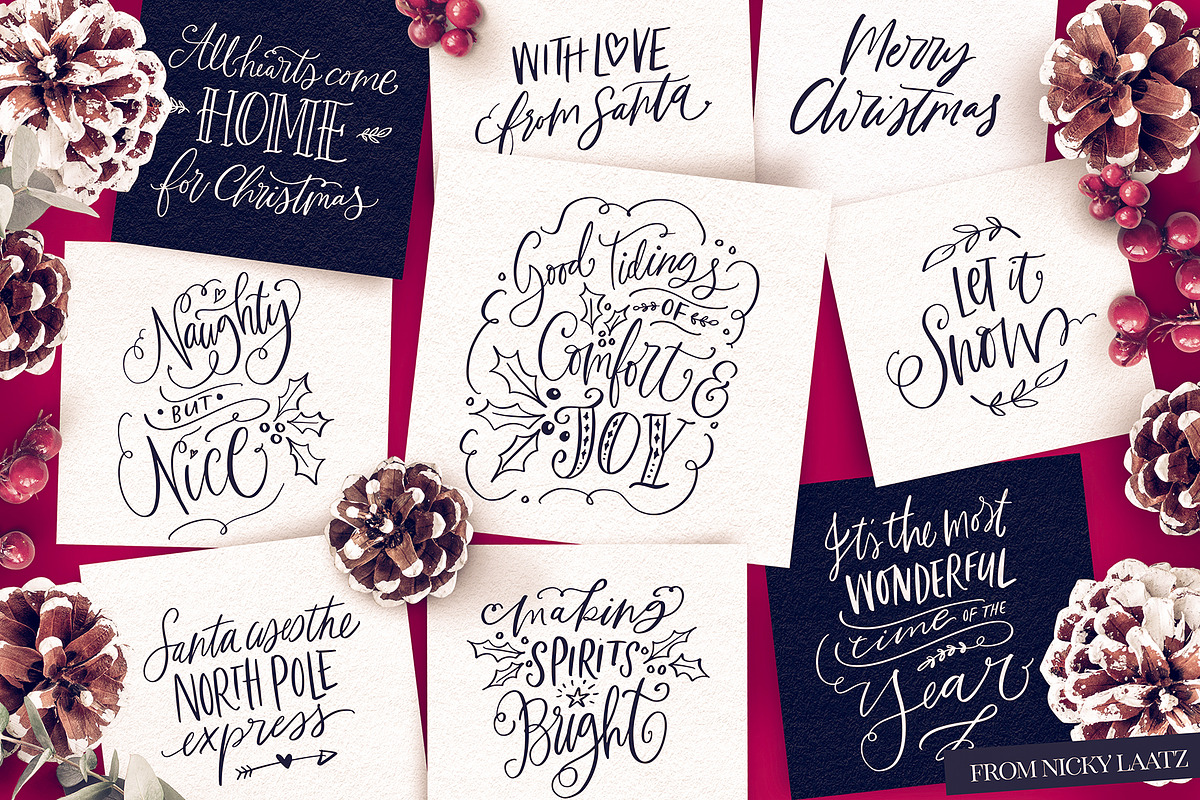 All hearts come
HOME
for Christmas
WITH LOVE
from Santa
Merry
Christmas
Naughty
BUT
Nice
Good Tidings
OF
Comfort &
JOY
LET it
Snow
Santa uses the
NORTH POLE
express
making
SPIRITS
Bright
It's the most
WONDERFUL
time OF THE
Year
FROM NICKY LAATZ